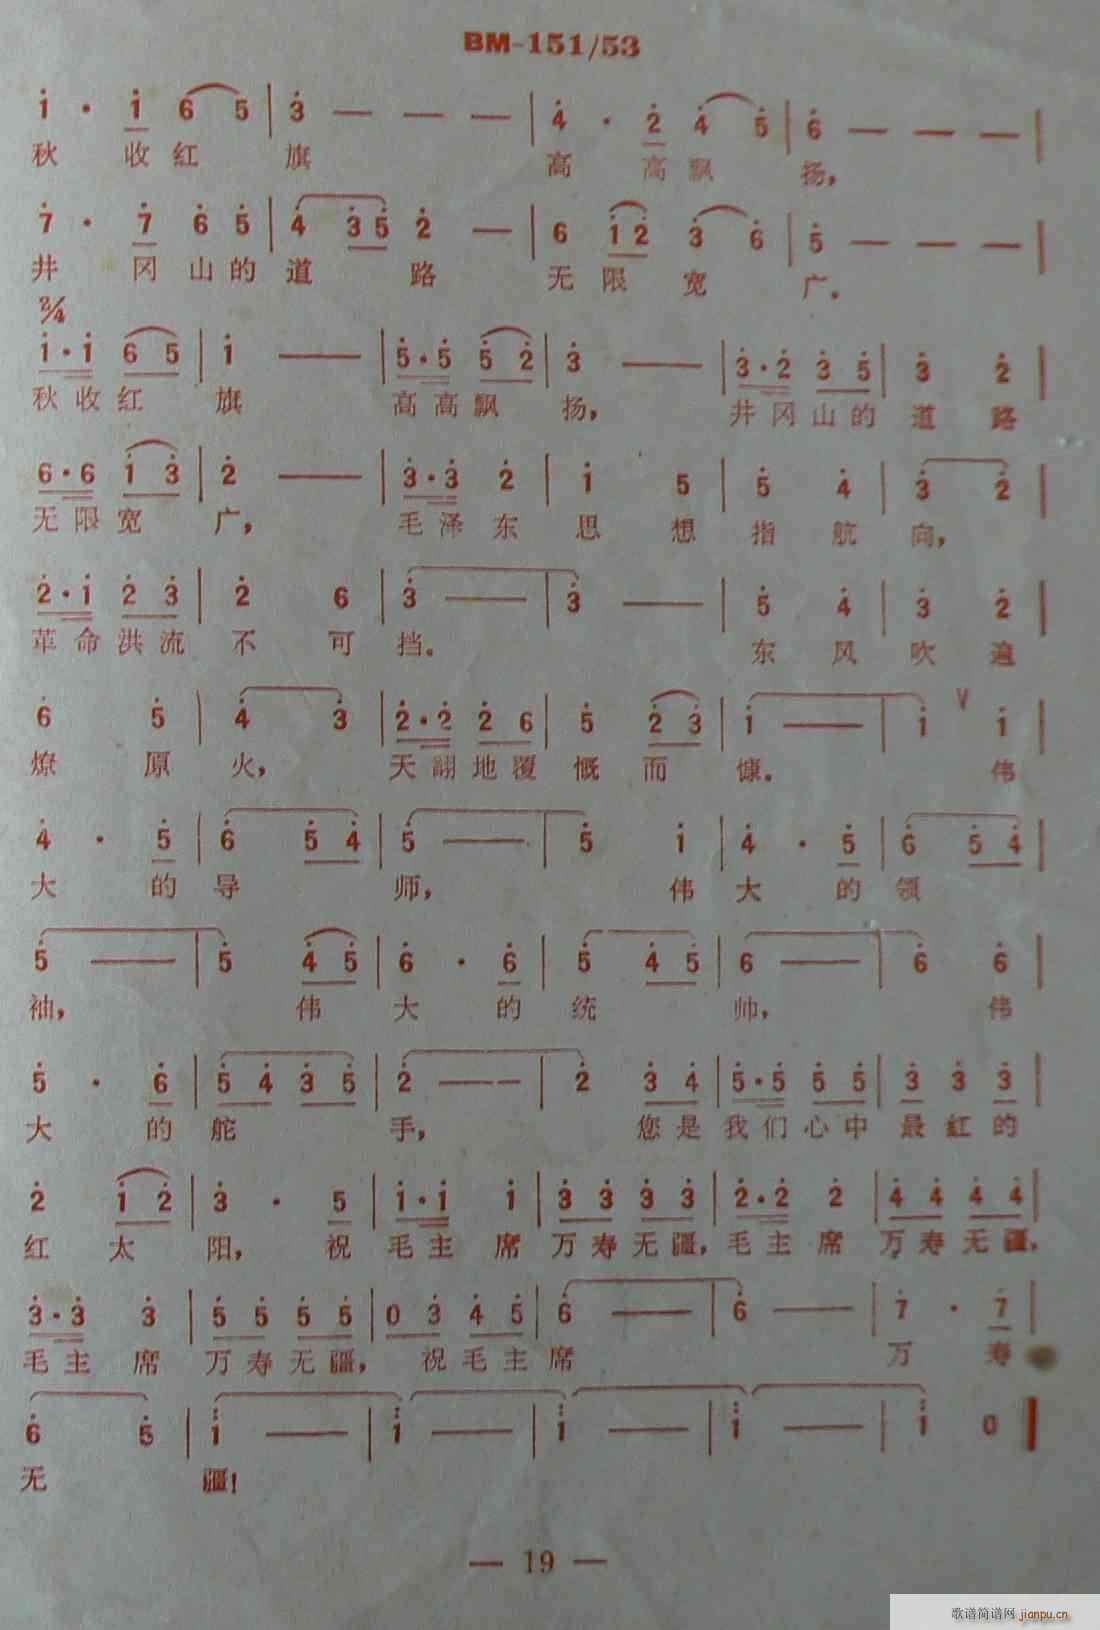 BM-151/53
i · i 6 5 | 3 — — — | 4 · 2 4 5 | 6 — — — |
秋 收 红 旗 高 高 飘 扬，
7 · 7 6 5 | 4 3 5 2 — | 6 i 2 3 6 | 5 — — — |
井 冈 山 的 道 路 无 限 宽 广。
2/4
i · i 6 5 | i — | 5 · 5 5 2 | 3 — | 3 · 2 3 5 | 3 2 |
秋 收 红 旗 高 高 飘 扬， 井 冈 山 的 道 路
6 · 6 i 3 | 2 — | 3 · 3 2 | i 5 | 5 4 | 3 2 |
无 限 宽 广， 毛 泽 东 思 想 指 航 向，
2 · i 2 3 | 2 6 | 3 — | 3 — | 5 4 | 3 2 |
革 命 洪 流 不 可 挡。 东 风 吹 遍
6 5 | 4 3 | 2 · 2 2 6 | 5 2 3 | i — | i V i |
燎 原 火， 天 翻 地 覆 慨 而 慷。 伟
4 · 5 | 6 5 4 | 5 — | 5 i | 4 · 5 | 6 5 4 |
大 的 导 师， 伟 大 的 领
5 — | 5 4 5 | 6 · 6 | 5 4 5 | 6 — | 6 6 |
袖， 伟 大 的 统 帅， 伟
5 · 6 | 5 4 3 5 | 2 — — | 2 3 4 | 5 · 5 5 5 | 3 3 3 |
大 的 舵 手， 您 是 我 们 心 中 最 红 的
2 i 2 | 3 · 5 | i · i i | 3 3 3 3 | 2 · 2 2 | 4 4 4 4 |
红 太 阳， 祝 毛 主 席 万 寿 无 疆， 毛 主 席 万 寿 无 疆，
3 · 3 3 | 5 5 5 5 | 0 3 4 5 | 6 — | 6 — | 7 · 7 |
毛 主 席 万 寿 无 疆， 祝 毛 主 席 万 寿
6 5 | i — | i — | i — | i — | i 0 |
无 疆！
— 19 —
歌谱简谱网 jianpu.cn